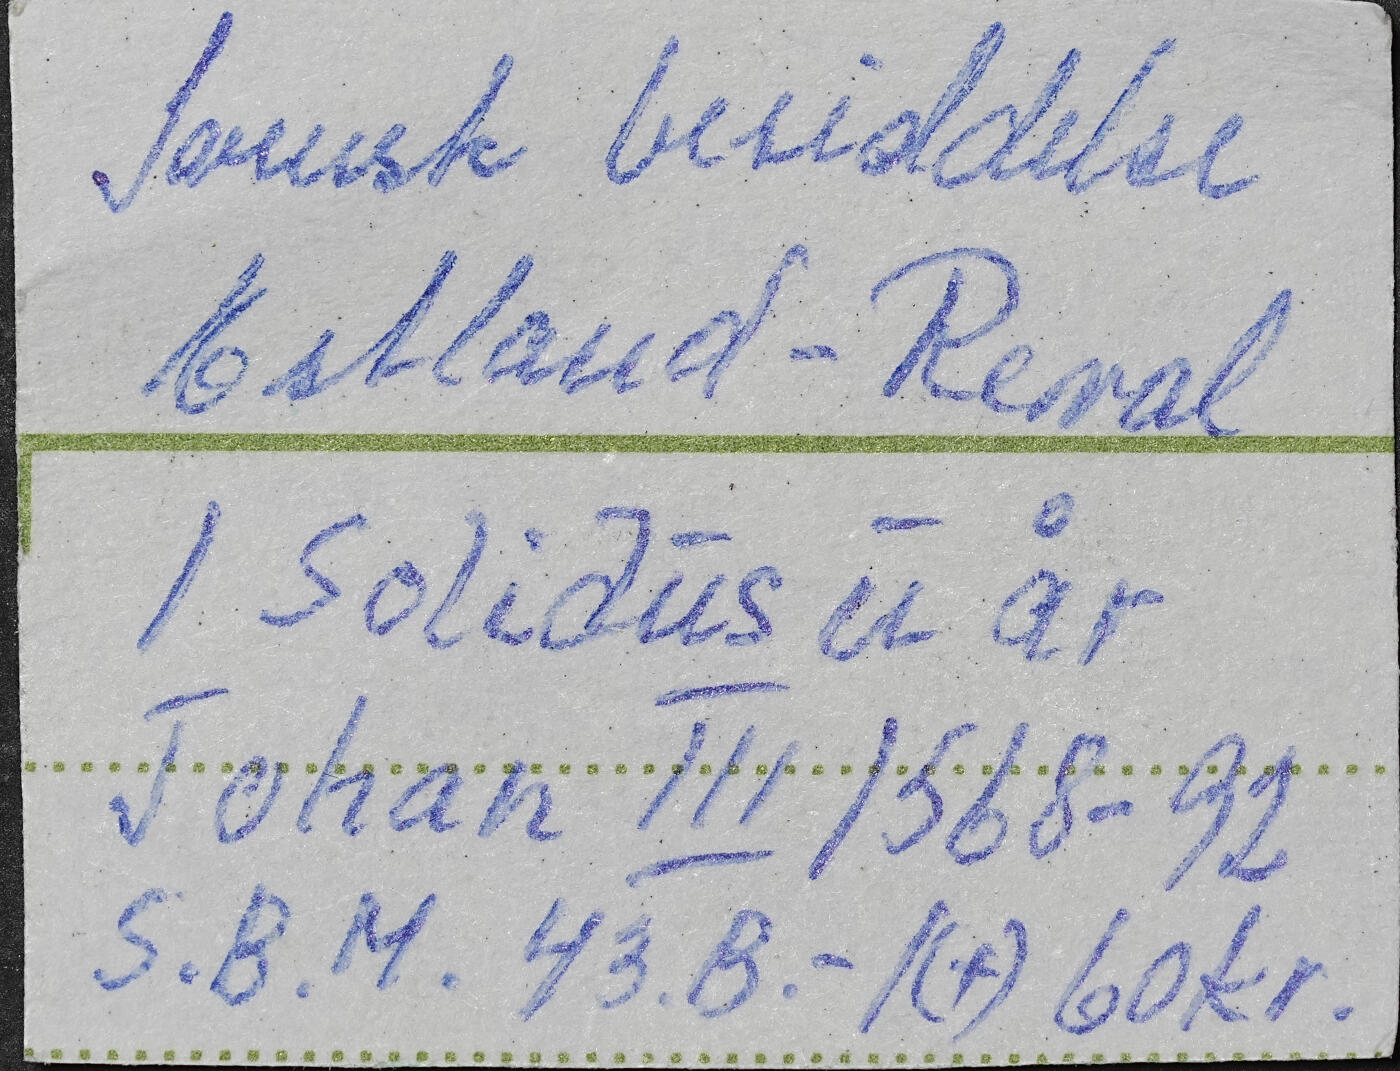 Svensk besiddelse
Estland - Reval
1 Solidūs ū år
Johan III 1568-92
S.B.M. 43.B.- 1(+) 60kr.